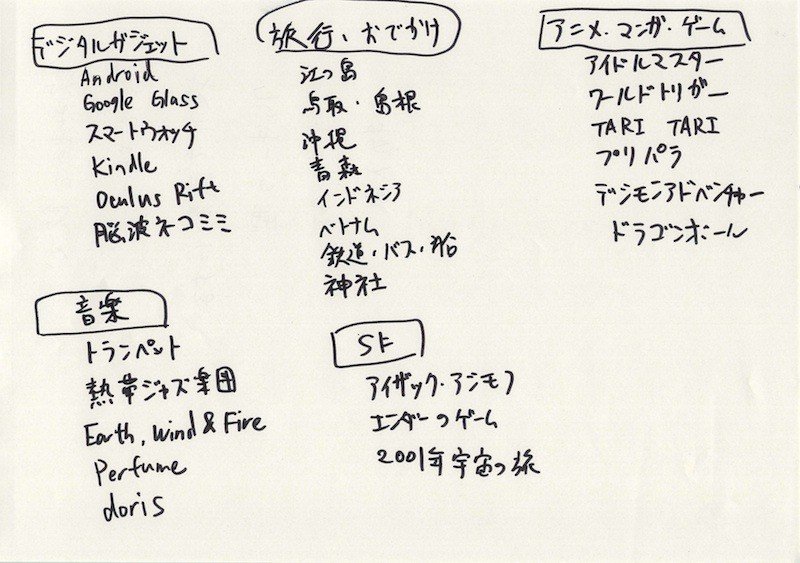 デジタルガジェット
Android
Google Glass
スマートウォッチ
Kindle
Oculus Rift
脳波ネコミミ
旅行、おでかけ
江の島
鳥取・島根
沖縄
青森
インドネシア
ベトナム
鉄道・バス・船
神社
アニメ・マンガ・ゲーム
アイドルマスター
ワールドトリガー
TARI TARI
プリパラ
デジモンアドベンチャー
ドラゴンボール
音楽
トランペット
熱帯ジャズ楽団
Earth, Wind & Fire
Perfume
doris
SF
アイザック・アシモフ
エンダーのゲーム
2001年宇宙の旅